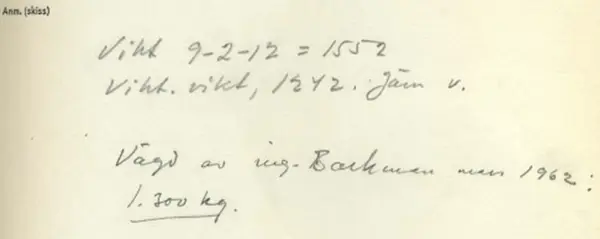 Anm. (skiss)
Vikt 9-2-12 = 1552
Vikt. vikt, 1242. Järn v.
Vägd av ing. Backman mars 1962:
1.300 kg.